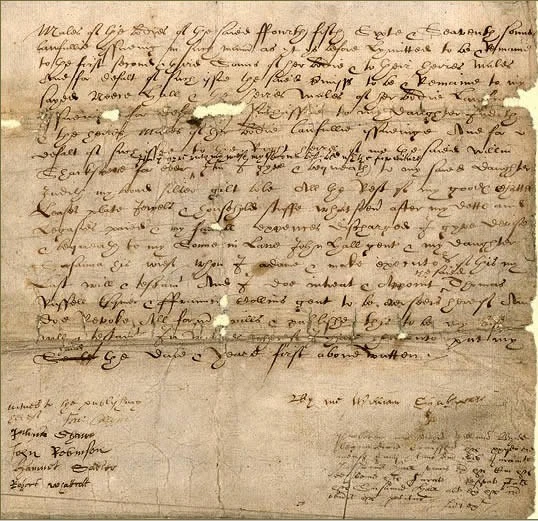 Males of the bodies of the saied ffourth fifth Sixte & Seaventh sonnes
lawfullie yssueing in such manner as yt ys before Lymitted to be & Remaine
to the first second & third Sonns of her bodie & to their heires Males
And for defalt of such issue the said premisses to be & Remaine to my
sayed Neece Hall & the heires Males of her bodie Lawfully
yssueing for defalt of issue to my daughter Judith
& the heires Males of her bodie lawfullie yssueinge And for
defalt of such issue to the Right heires of me the saied William
Item I gyve unto my wief my second best bed with the furniture
Shackspeare for ever Item I gyve & bequeath to my saied daughter
Judith my broad silver gilt bole All the Rest of my goodes Chattels
Leases plate Jewels & household stuffe whatsoever after my dettes and
Legasies paied & my funerall expences discharged I gyve devise
& bequeath to my Sonne in Lawe John Hall gent & my daughter
Susanna his wief whom I ordaine & make executors of this my
Last will & testament And I doe intreat & Appoint the saied Thomas
Russell Esquier & ffrauncis Collins gent to be overseers hereof And
doe Revoke All former wills & publishe this to be my last
will & testament In witnes whereof I have hereunto put my
hand
Seale the Daie & Yeare first above written
witnes to the publishing
hereof Fra: Collyns
Julyus Shawe
John Robinson
Hamnet Sadler
Robert Whattcott
By me William Shakspeare